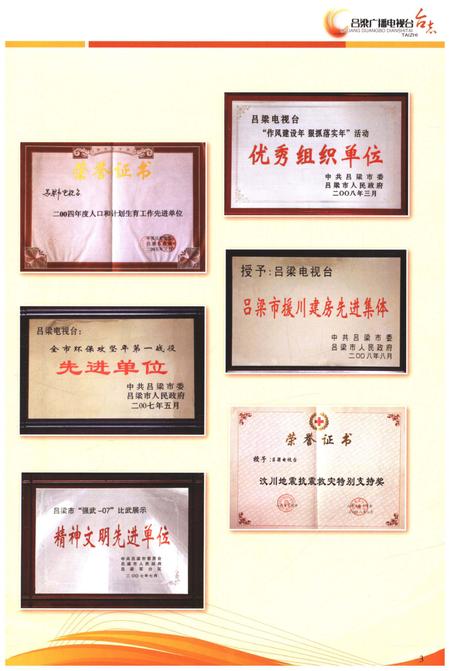 吕梁广播电视台
台志
LIANG GUANGBO DIANSHITAI
TAIZHI
荣誉证书
吕梁电视台
二00四年度人口和计划生育工作先进单位
吕梁电视台：
全市环保攻坚年第一战役
先进单位
中共吕梁市委
吕梁市人民政府
二00七年五月
吕梁市“强武-07”比武展示
精神文明先进单位
中共吕梁市委员会
吕梁市人民政府
吕梁军分区
二00七年七月
吕梁电视台
“作风建设年 狠抓落实年”活动
优秀组织单位
中共吕梁市委
吕梁市人民政府
二00八年三月
授予：吕梁电视台
吕梁市援川建房先进集体
中共吕梁市委
吕梁市人民政府
二00八年八月
荣誉证书
授予：吕梁电视台
汶川地震抗震救灾特别支持奖
3